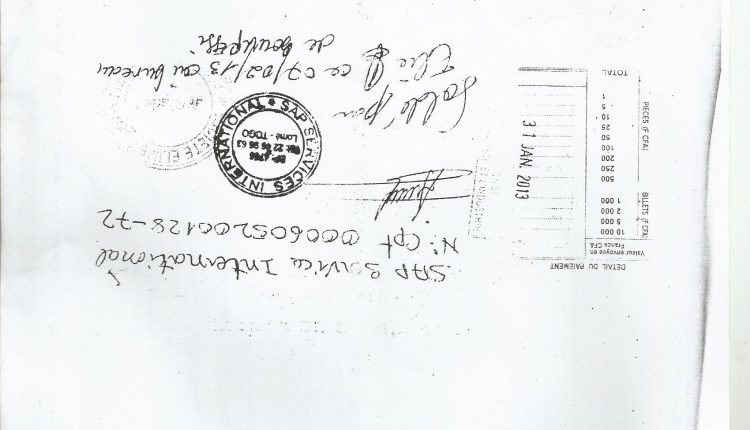 DETAIL DU PAIEMENT
Valeur envoyée en
Francs CFA
BILLETS (F CFA)
10 000
5 000
2 000
1 000
PIECES (F CFA)
500
250
200
100
50
25
10
5
1
TOTAL
31 JAN. 2013
SAP Service International
N° Cpt 000605200128-72
SAP SERVICES INTERNATIONAL
Lomé - TOGO
Soldé par
Elie ce 07/02/13 au bureau
de Boukpessi